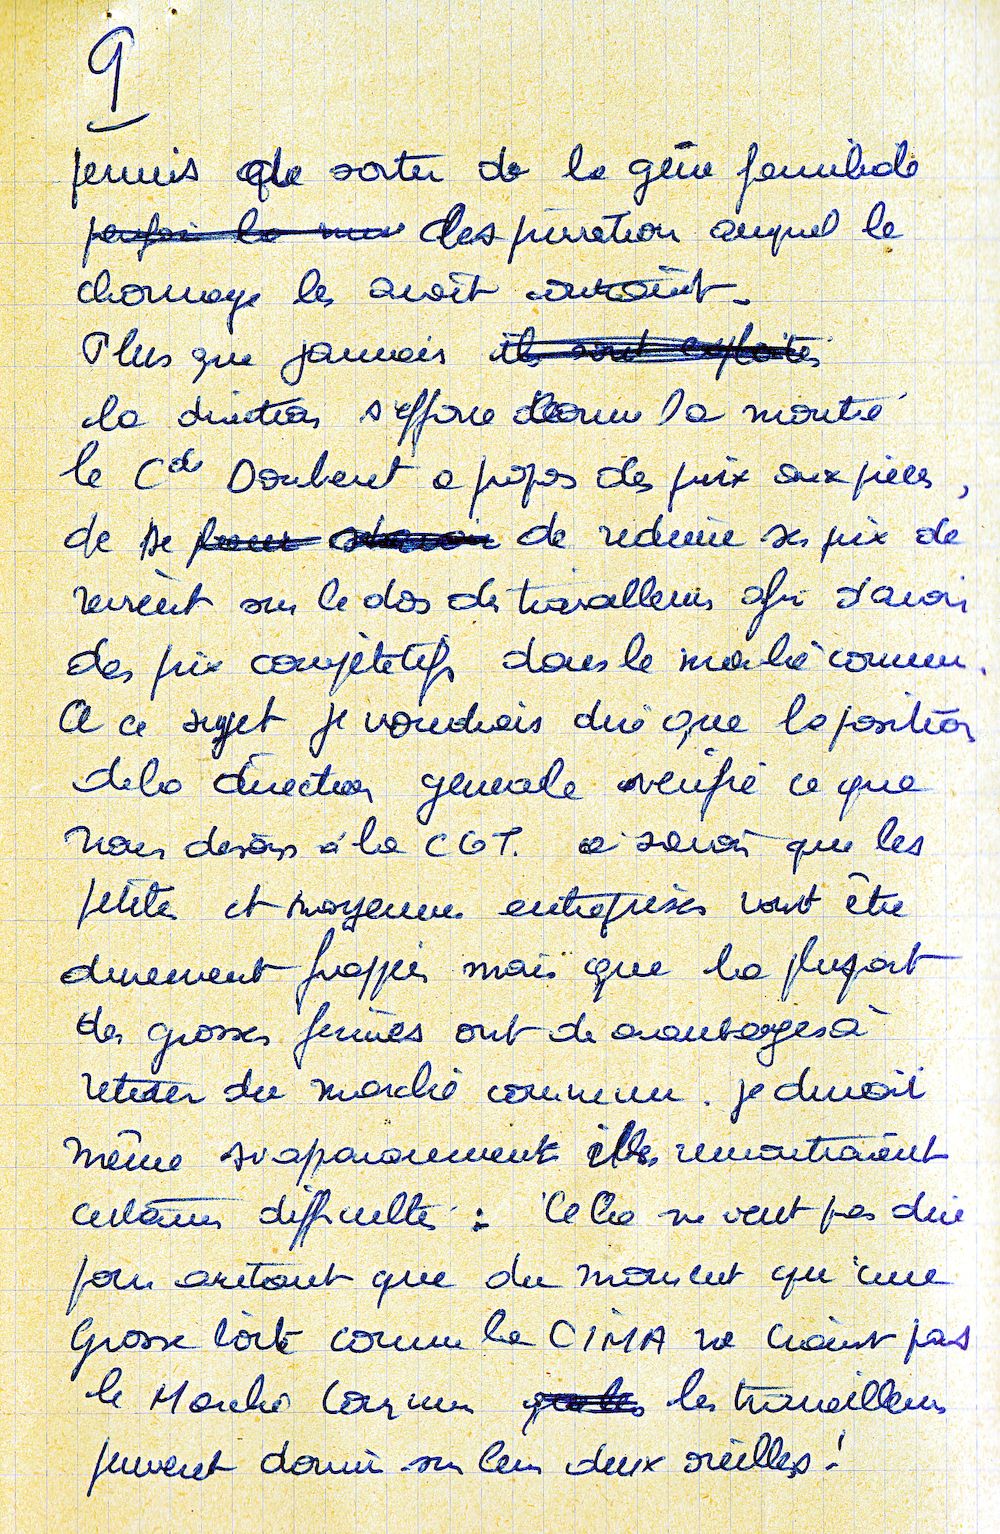 9
permis de sortir de la gène familiale
des privation auquel le
chomage les avait
Plus que jamais
la direction s'efforce comme l'a montré
le Cde Doubenet a propos des prix aux pièces,
de se de reduire ses prix de
revient sur le dos des travailleurs afin d'avoir
des prix compétetifs dans le marché commun.
A ce sujet je voudrais dire que la position
de la direction generale verifie ce que
nous disons à la CGT. a savoir que les
petites et moyennes entreprises vont être
durement frappées mais que la plupart
des grosses firmes ont de avantages à
retirer du marché commun. je dirait
même si apparemment ils remontraient
certaines difficultés : Cela ne veut pas dire
pour autant que du moment qu'une
Grosse boite comme la CIMA ne craint pas
le Marché Commun les travailleurs
peuvent dormir sur leur deux oreilles !